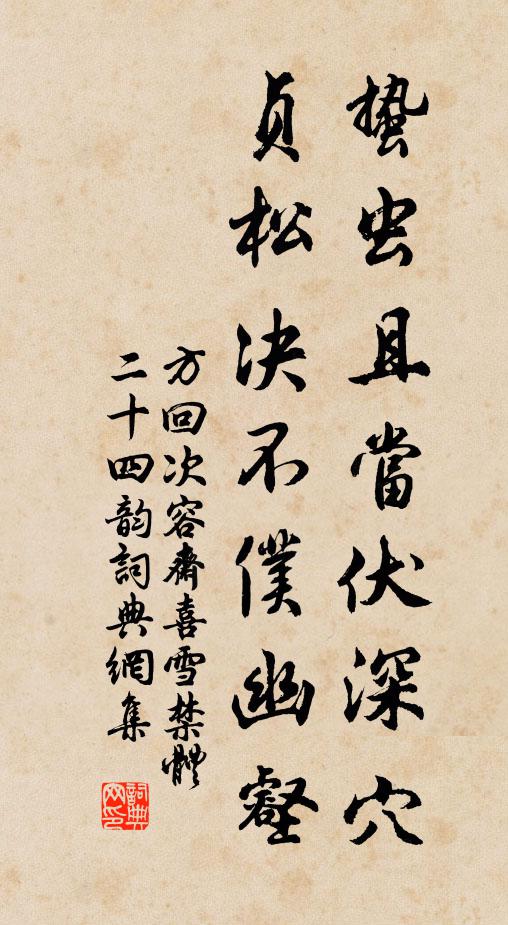 蛰虫且當伏深穴
貞松决不僕幽壑
方回次容齋喜雪禁體
二十四韵詞典網集
詞典网印